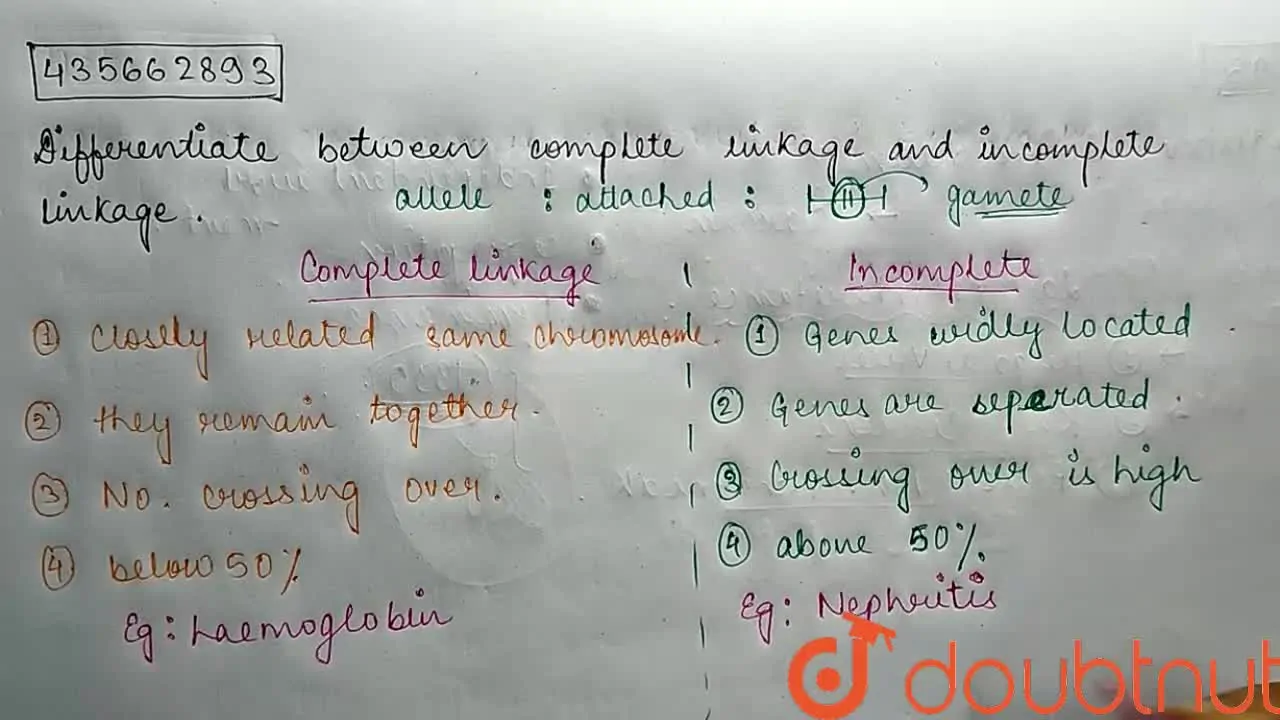 435662893
Differentiate between complete linkage and incomplete
linkage. allele : attached : gamete
Complete linkage
Incomplete
① Closely related same chromosome.
① Genes widly located
② they remain together.
② Genes are seperated.
③ No. crossing over.
③ Crossing over is high
④ below 50%
④ above 50%.
Eg: haemoglobin
Eg: Nephritis
doubtnut